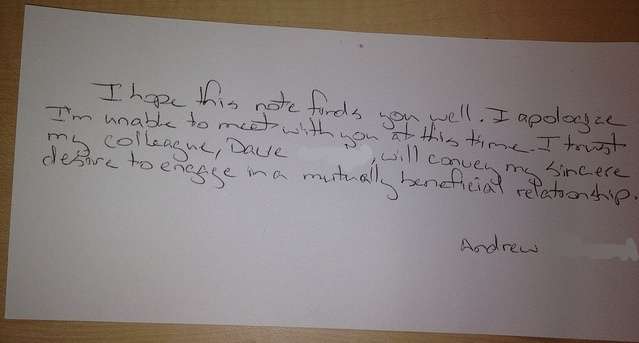 I hope this note finds you well. I apologize
I'm unable to meet with you at this time. I trust
my colleague, Dave , will convey my sincere
desire to engage in a mutually beneficial relationship.
Andrew